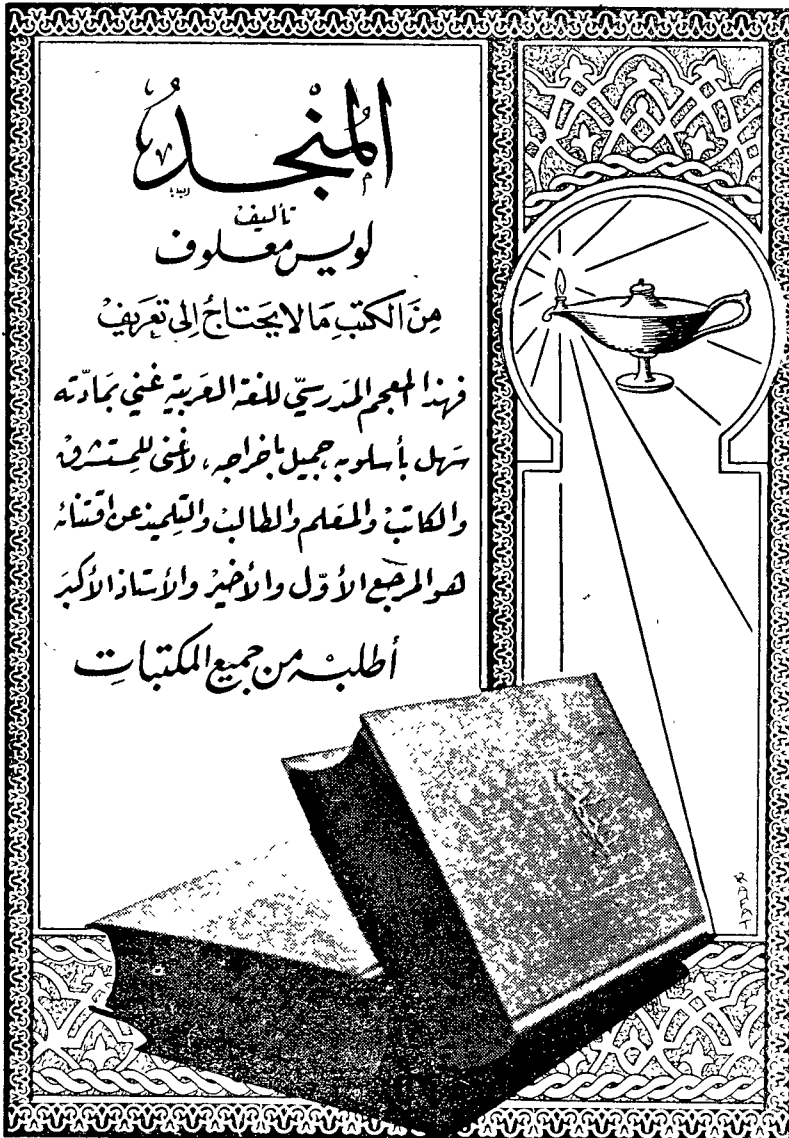 المُنْجدُ
تأليف
لويس معلوف
مِنَ الكتبِ مَا لا يَحتَاجُ إلى تعَريفْ
فهذا المعجم المدَرسيّ للغة العَربية غني بمَادّته
سَهل بأسلوبه، جميل باخراجه، لا غنى للمستشرق
والكاتبْ والمعَلم والطالبْ والتِلميذ عن اقتنائه
هو المرجَع الأوّل والأخيرْ والأستاذ الأكبَر
أطلبه من جميع المكتباتِ